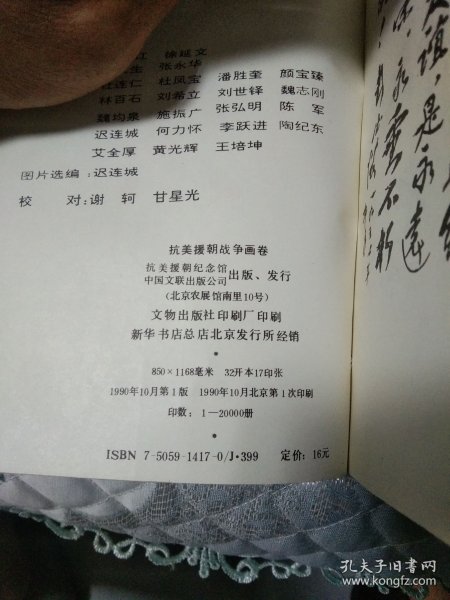 江 徐延文
生 张永华
杜连仁 杜凤宝 潘胜奎 颜宝臻
林百石 刘希立 刘世铎 魏志刚
魏均泉 施振广 张弘明 陈军
迟连城 何力怀 李跃进 陶纪东
艾全厚 黄光辉 王培坤
图片选编:迟连城
校 对:谢轲 甘星光
抗美援朝战争画卷
抗美援朝纪念馆
中国文联出版公司
出版、发行
(北京农展馆南里10号)
文物出版社印刷厂印刷
新华书店总店北京发行所经销
850×1168毫米 32开本17印张
1990年10月第1版 1990年10月北京第1次印刷
印数:1—20000册
ISBN 7-5059-1417-0/J·399 定价:16元
谊,是永远
孔夫子旧书网
www.kongfz.com